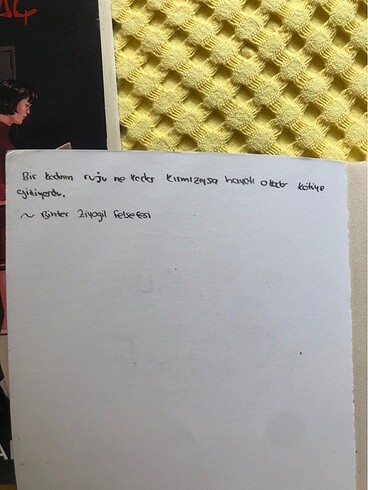 Bir kadının ruju ne kadar kırmızıysa hayatı o kadar kötüye
gidiyordu.
~ Bihter Ziyagil Felsefesi